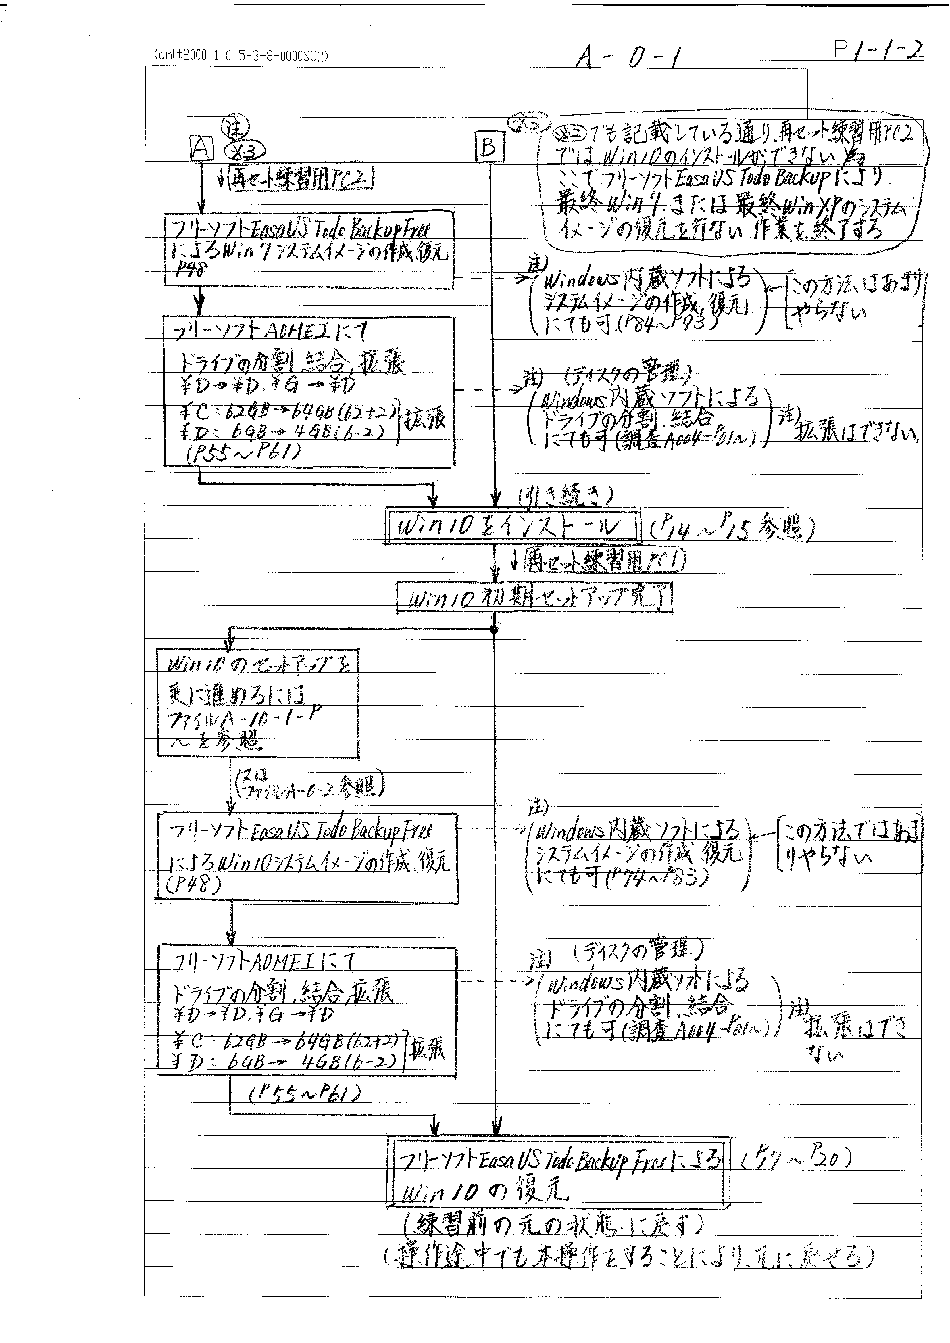 A-0-1
P1-1-2
注
※3
A
↓再セット練習用PC2
フリーソフトEasaUS Todo Backup Free
によるWin7システムイメージの作成、復元
P48
フリーソフトAOMEIにて
ドライブの分割、結合、拡張
¥D→¥D、¥G→¥D
¥C:62GB→64GB(62+2)
¥D:6GB→4GB(6-2)
拡張
(P55〜P61)
B
※3
※3でも記載している通り、再セット練習用PC2
ではWin10のインストールができない為
ここでフリーソフトEasaUS Todo Backupにより
最終Win7または最終WinXPのシステム
イメージの復元を行ない作業を終了する
注)
Windows内蔵ソフトによる
システムイメージの作成、復元
にても可(P84〜P93)
この方法はあまり
やらない
注) (ディスクの管理)
Windows内蔵ソフトによる
ドライブの分割、結合
にても可(調査A004-P01〜)
注)
拡張はできない
(引き続き)
Win10をインストール
(P14〜P15参照)
↓再セット練習用PC1
Win10初期セットアップ完了
Win10のセットアップを
更に進めるには
ファイルA-10-1-P
〜を参照
(又は
ファイルA-0-2参照)
フリーソフトEasaUS Todo Backup Free
によるWin10システムイメージの作成、復元
(P48)
注)
Windows内蔵ソフトによる
システムイメージの作成、復元
にても可(P74〜P83)
この方法ではあま
りやらない
フリーソフトAOMEIにて
ドライブの分割、結合、拡張
¥D→¥D、¥G→¥D
¥C:62GB→64GB(62+2)
¥D:6GB→4GB(6-2)
拡張
(P55〜P61)
注) (ディスクの管理)
Windows内蔵ソフトによる
ドライブの分割、結合
にても可(調査A004-P01〜)
注)
拡張はでき
ない
フリーソフトEasaUS Todo Backup Freeによる
Win10の復元
(練習前の元の状態に戻す)
(操作途中でも本操作をすることにより、元に戻せる)